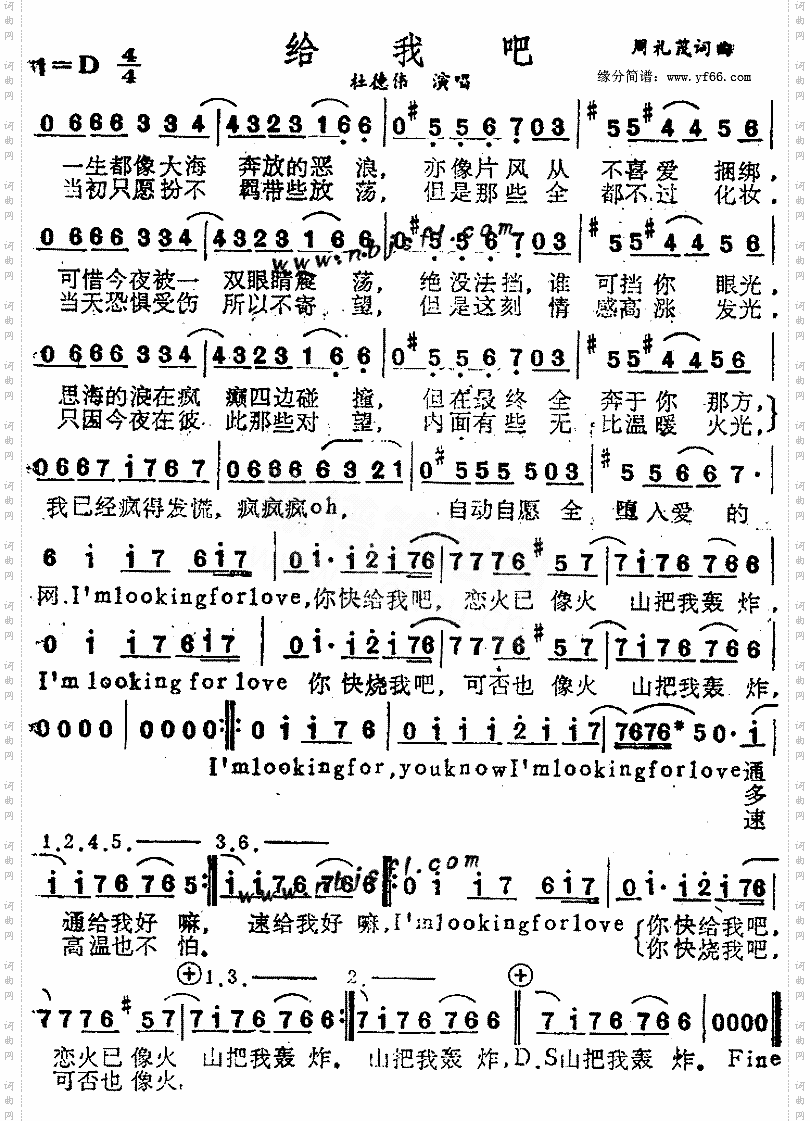 给我吧
1=D 4/4
周礼茂词曲
杜德伟 演唱
缘分简谱：www.yf66.com
0 666 3 3 4 | 4323 1 6 6 | 0 #5 5 6 7 0 3 | #5 5 #4 4 5 6
一生都像大海 奔放的恶 浪， 亦像片风从 不喜爱 捆绑，
当初只愿扮不 羁带些放 荡， 但是那些全 都不过 化妆，
0 666 3 3 4 | 4323 1 6 6 | 0 #5 5 6 7 0 3 | #5 5 #4 4 5 6
www.nbjcfl.com
可惜今夜被一 双眼睛震 荡， 绝没法挡，谁 可挡你 眼光，
当天恐惧受伤 所以不寄 望， 但是这刻情 感高涨 发光，
0 666 3 3 4 | 4323 1 6 6 | 0 #5 5 6 7 0 3 | #5 5 #4 4 5 6
思海的浪在疯 癫四边碰 撞， 但在最终全 奔于你 那方，
只因今夜在彼 此那些对 望， 内面有些无 比温暖 火光，
0 6 6 7 i 7 6 7 | 0 6 6 6 6 3 2 1 | 0 #5 5 5 5 0 3 | #5 5 6 6 7 ·
我已经疯得发慌，疯疯疯oh， 自动自愿全 堕入爱的
6 i i 7 6 i7 | 0 i · i 2 i 76 | 7 7 7 6 #5 7 | 7 i 7 6 7 6 6
网.I'mlookingforlove,你快给我吧， 恋火已 像火 山把我轰 炸，
0 i i 7 6 i7 | 0 i · i 2 i 76 | 7 7 7 6 #5 7 | 7 i 7 6 7 6 6
I'm looking for love 你 快烧我吧， 可否也 像火 山把我轰 炸，
0 0 0 0 | 0 0 0 0 :‖: 0 i i 7 6 | 0 i i i 2 i i 7 | 7676 * 5 0 · i
I'mlookingfor,youknowI'mlookingforlove通
多
速
1.2.4.5. 3.6.
i i 7 6 7 6 5 :‖ i i 7 6 7 6 6 :‖: 0 i i 7 6 i7 | 0 i · i 2 i 76
www.nbjcfl.com
通给我好 嘛， 速给我好 嘛,I'mlookingforlove 你快给我吧，
高温也不 怕。 你快烧我吧，
1.3. 2.
7 7 7 6 #5 7 | 7 i 7 6 7 6 6 :‖ 7 i 7 6 7 6 6 ‖ 7 i 7 6 7 6 6 | 0 0 0 0 ‖
恋火已 像火 山把我轰 炸。 山把我轰 炸，D.S山把我轰 炸。 Fine
可否也 像火